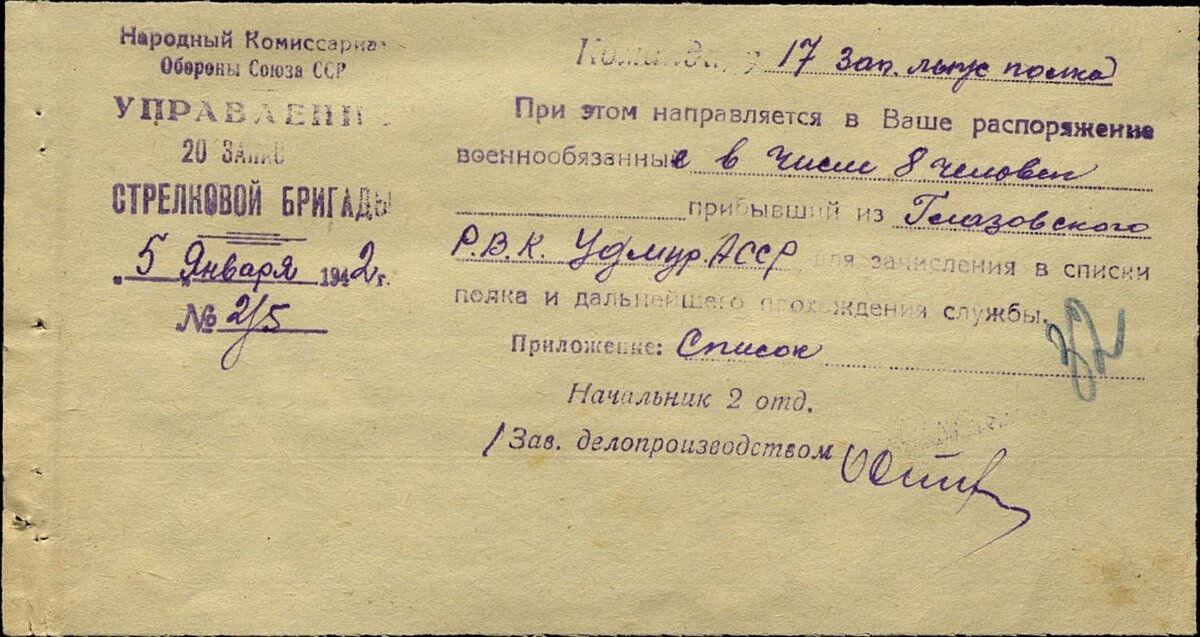 Народный Комиссариа
Обороны Союза ССР
УПРАВЛЕНИ
20 ЗАПАС
СТРЕЛКОВОЙ БРИГАДЫ
"5" Января 1942 г.
№ 2/5
Команди у 17 зап. лыж полка
При этом направляется в Ваше распоряжение
военнообязанные в числе 8 человек
прибывший из Глазовского
Р.В.К. Удмур. АССР для зачисления в списки
полка и дальнейшего прохождения службы.
Приложение: Список
Начальник 2 отд.
/Зав. делопроизводством